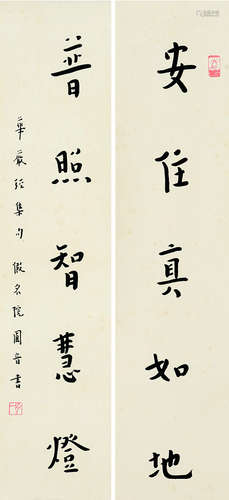 安住真如地
普照智慧燈
華嚴經集句 假名院圓音書